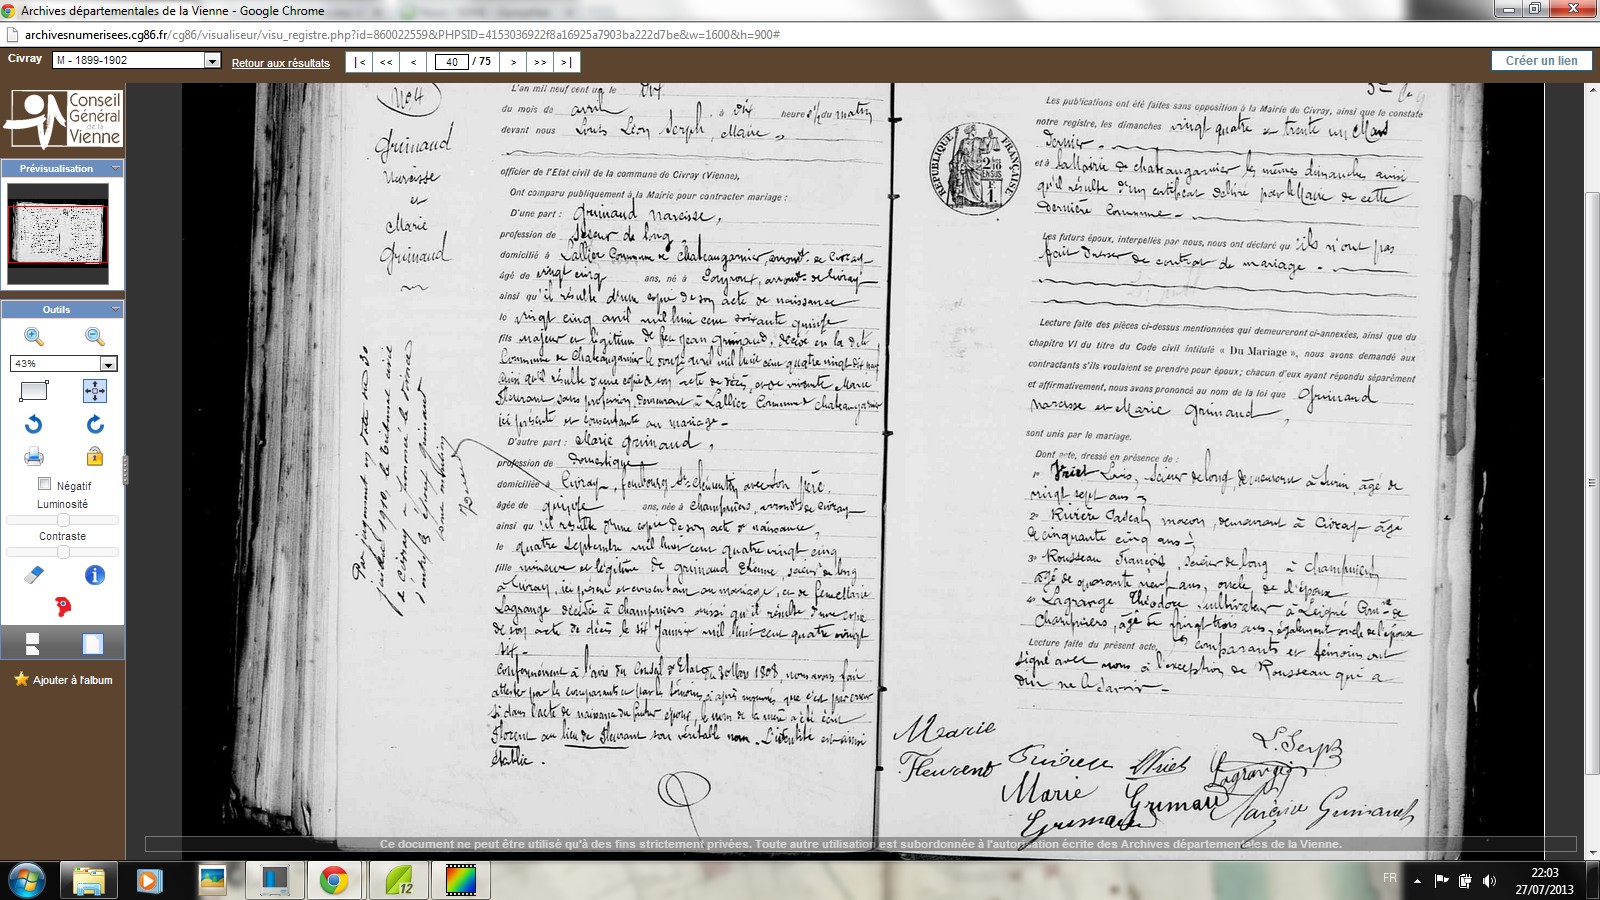 Archives départementales de la Vienne - Google Chrome
archivesnumerisees.cg86.fr/cg86/visualiseur/visu_registre.php?id=860022559&PHPSID=4153036922f8a16925a7903ba222d7be&w=1600&h=900#
Civray M - 1899-1902 Retour aux résultats |< << < 40 / 75 > >> >| Créer un lien
Conseil
Général
de la
Vienne
Prévisualisation
Outils
43%
Négatif
Luminosité
Contraste
Ajouter à l'album
No 4
Guinaud
Narcisse
et
Marie
Guinaud
L'an mil neuf cent un le dix
du mois de avril, à dix heures 1/2 du matin
devant nous Louis Léon Serph, Maire
officier de l'Etat civil de la commune de Civray (Vienne),
Ont comparu publiquement à la Mairie pour contracter mariage :
D'une part : Guinaud Narcisse,
profession de Scieur de long
domicilié à Lallier Commune de Chateaugarnier, arrondt de Civray
âgé de vingt cinq ans, né à arrondt de Civray
ainsi qu'il résulte d'une copie de son acte de naissance
le vingt cinq avril mil huit cent soixante quinze
fils majeur et légitime de feu Jean Guinaud, décédé en la dite
Commune de Chateaugarnier le avril mil huit cent quatre vingt dix
ainsi qu'il résulte d'une copie de son acte de décès, et de vivante Marie
Fleurant sans profession, demeurant à Lallier Commune de Chateaugarnier
ici présente et consentante au mariage -
D'autre part : Marie Guinaud,
profession de Domestique
domiciliée à Civray, faubourg St Clémentin avec son père,
âgée de quinze ans, née à Champniers, arrondt de Civray
ainsi qu'il résulte d'une copie de son acte de naissance,
le quatre Septembre mil huit cent quatre vingt cinq
fille mineure et légitime de Guinaud Etienne, scieur de long
à Civray, ici présent et consentant au mariage, et de feue Marie
Lagrange décédée à Champniers ainsi qu'il résulte d'une copie
de son acte de décès le Janvier mil huit cent quatre vingt
Conformément à l'avis du Conseil d'Etat du 30 Mars 1808, nous avons fait
attester par les comparants et par les témoins ci après nommés, que c'est par erreur
si dans l'acte de naissance du futur époux, le nom de la mère a été écrit
Florent au lieu de Fleurant son véritable nom. L'identité est ainsi
établie.
Par jugement en date du 30
juillet 1910, le tribunal civil
de Civray a prononcé le divorce
entre les époux Guinaud
Les publications ont été faites sans opposition à la Mairie de Civray, ainsi que le constate
notre registre, les dimanches vingt quatre et trente un Mars
dernier -
et à la Mairie de Chateaugarnier les mêmes dimanches ainsi
qu'il résulte d'un certificat délivré par le Maire de cette
dernière commune -
RÉPUBLIQUE FRANÇAISE
Les futurs époux, interpellés par nous, nous ont déclaré qu'ils n'ont pas
fait dresser de contrat de mariage -
Lecture faite des pièces ci-dessus mentionnées qui demeureront ci-annexées, ainsi que du
chapitre VI du titre du Code civil intitulé « Du Mariage », nous avons demandé aux
contractants s'ils voulaient se prendre pour époux ; chacun d'eux ayant répondu séparément
et affirmativement, nous avons prononcé au nom de la loi que Guinaud
Narcisse et Marie Guinaud,
sont unis par le mariage.
Dont acte, dressé en présence de :
1° Louis, scieur de long, demeurant à Surin, âgé de
vingt sept ans
2° Rivière Pascal, maçon, demeurant à Civray âgé
de cinquante cinq ans
3° Rousseau François, scieur de long à Champniers
âgé de quarante neuf ans, oncle de l'époux
4° Lagrange Théodore, cultivateur à Leigné Cne de
Champniers, âgé de vingt trois ans, également oncle de l'épouse
Lecture faite du présent acte, les comparants et témoins ont
signé avec nous à l'exception de Rousseau qui a
dit ne le savoir -
Marie
Fleurent
L. Serph
Lagrange
Marie
Narcisse Guinaud
Ce document ne peut être utilisé qu'à des fins strictement privées. Toute autre utilisation est subordonnée à l'autorisation écrite des Archives départementales de la Vienne.
FR
22:03
27/07/2013